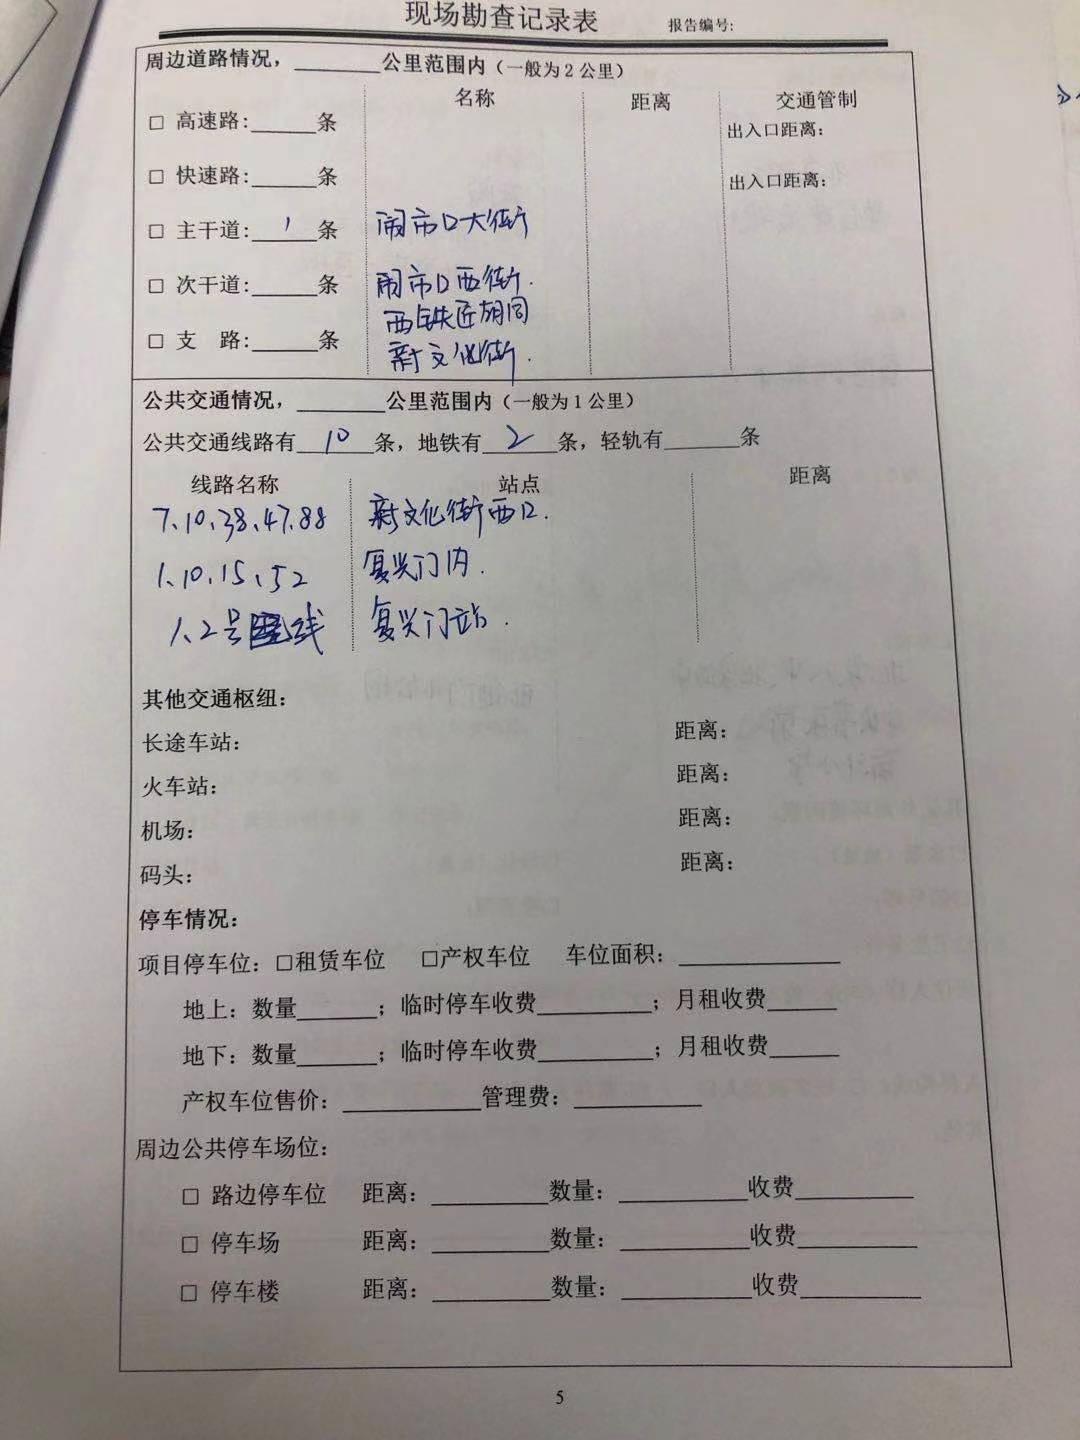 现场勘查记录表 报告编号:
周边道路情况，______公里范围内（一般为2公里）
名称 距离 交通管制
□ 高速路:_____条 出入口距离：
□ 快速路:_____条 出入口距离：
□ 主干道:__1__条 闹市口大街
□ 次干道:_____条 闹市口西街.
西铁匠胡同
□ 支 路:_____条 新文化街.
公共交通情况，______公里范围内（一般为1公里）
公共交通线路有__10__条，地铁有__2__条，轻轨有______条
线路名称 站点 距离
7、10、38、47、88 新文化街西口.
1、10、15、52 复兴门内.
1、2号线 复兴门站.
其他交通枢纽：
长途车站： 距离：
火车站： 距离：
机场： 距离：
码头： 距离：
停车情况：
项目停车位：□租赁车位 □产权车位 车位面积：____________
地上：数量______；临时停车收费_________；月租收费_____
地下：数量______；临时停车收费_________；月租收费_____
产权车位售价：___________管理费：__________
周边公共停车场位：
□ 路边停车位 距离：_________数量：__________收费_________
□ 停车场 距离：_________数量：__________收费_________
□ 停车楼 距离：_________数量：__________收费_________
5